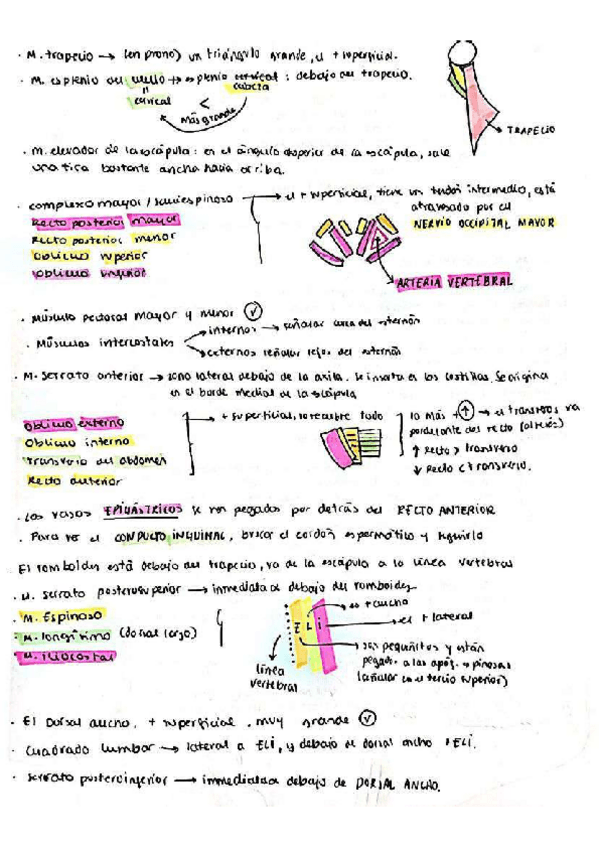 · M. trapecio → (en prono) un triángulo grande, el + superficial.
· M. esplenio del cuello ↔ esplenio cervical : debajo del trapecio.
=
cervical
<
cabeza
más grande
→ TRAPECIO
· M. elevador de la escápula : en el ángulo superior de la escápula, sale
una tira bastante ancha hacia arriba.
· complexo mayor / semiespinoso → el + superficial, tiene un tendón intermedio, está
atravesado por el
NERVIO OCCIPITAL MAYOR
Recto posterior mayor
Recto posterior menor
Oblicuo superior
Oblicuo inferior
ARTERIA VERTEBRAL
· Músculo pectoral mayor y menor ✓
· Músculos intercostales
→ internos → señalar cerca del esternón
→ externos señalar lejos del esternón
· M. Serrato anterior → zona lateral debajo de la axila. Se inserta en las costillas. Se origina
en el borde medial de la escápula
Oblicuo externo
Oblicuo interno
Transverso del abdomen
Recto anterior
→ + superficial, lo recubre todo
lo más + ↑ → el transverso va
por delante del recto
↑ Recto > transverso
↓ Recto < transverso.
· Los vasos EPIGÁSTRICOS se ven pegados por detrás del RECTO ANTERIOR
· Para ver el CONDUCTO INGUINAL, buscar el cordón espermático y seguirlo
El romboides está debajo del trapecio, va de la escápula a la línea vertebral
· M. serrato posterosuperior → inmediata al debajo del romboides
· M. Espinoso
· M. longísimo (dorsal largo)
· M. iliocostal
E L i
→ + ancho
→ el + lateral
→ son pequeñitos y están
pegados a las apóf. espinosas
(señalar en el tercio superior)
línea
vertebral
· El Dorsal ancho, + superficial, muy grande ✓
· Cuadrado lumbar → lateral a ELi, y debajo de dorsal ancho + ELi.
· serrato posteroinferior → inmediata a debajo de DORSAL ANCHO.